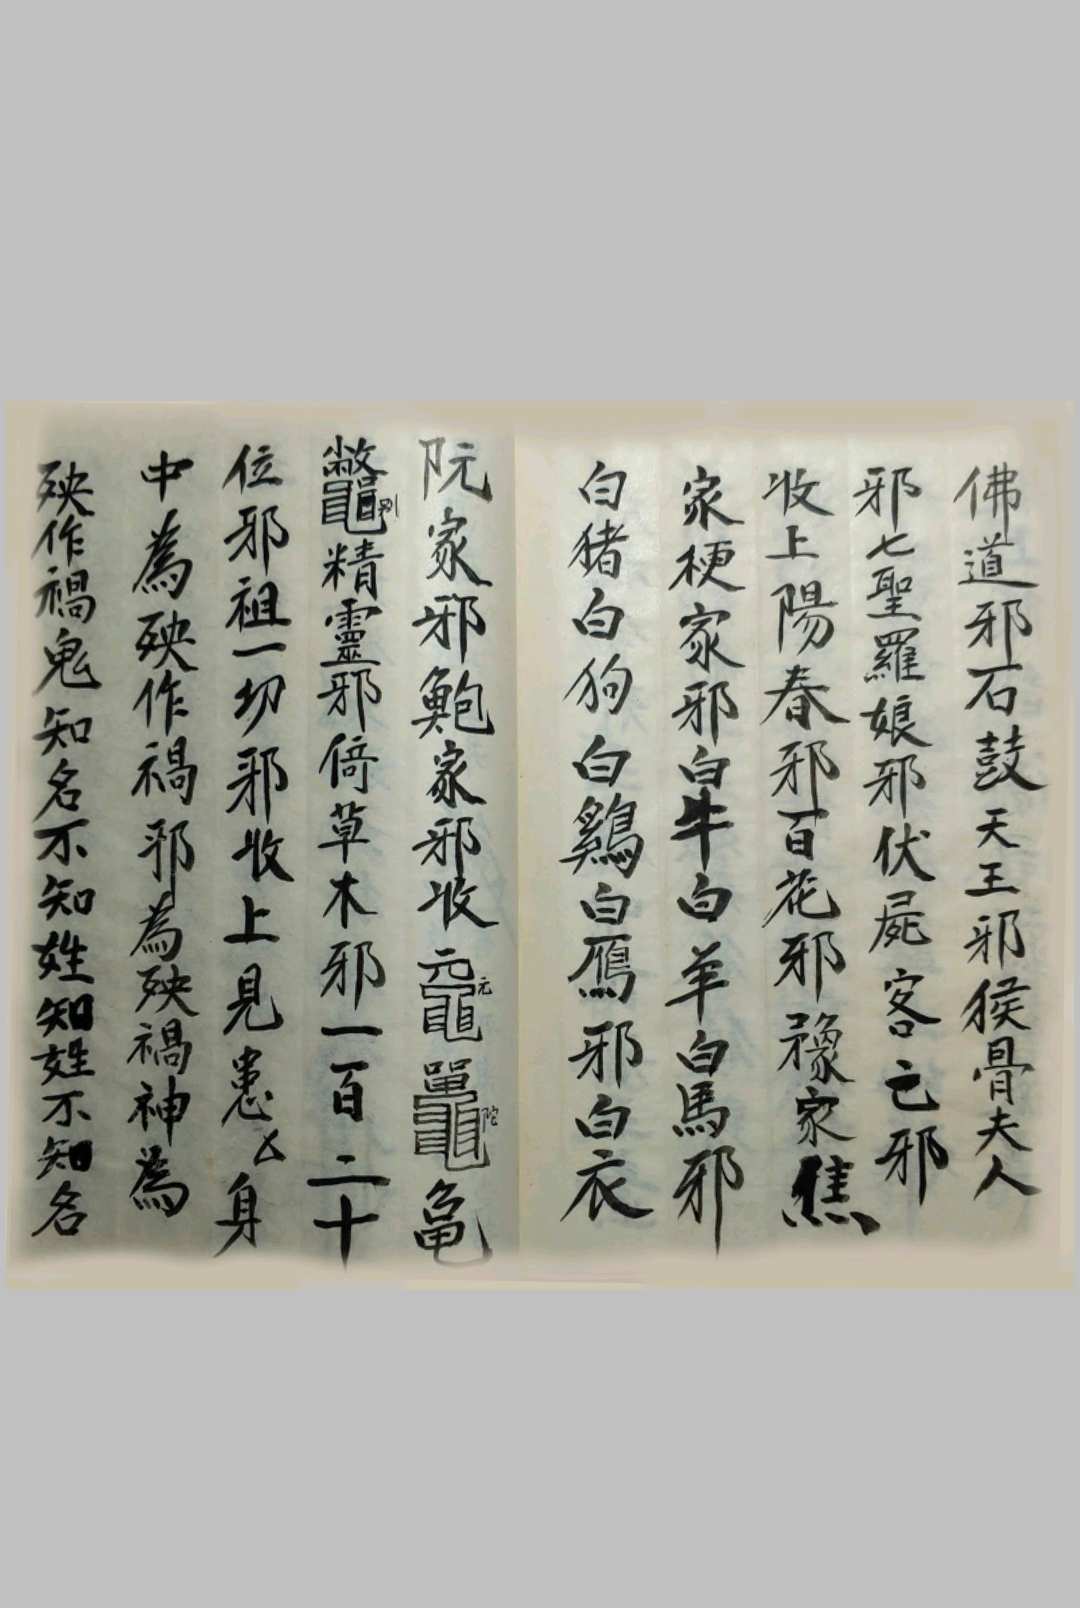 佛道邪石鼓天王邪猴骨夫人
邪七聖羅娘邪伏屍客亡邪
收上陽春邪百花邪豫家焦
家梗家邪白牛白羊白馬邪
白猪白狗白鷄白鴈邪白衣
阮家邪鮑家邪收黿元鼉陀龟
鼈别精靈邪倚草木邪一百二十
位邪祖一切邪收上見患厶身
中為殃作禍邪為殃禍神為
殃作禍鬼知名不知姓知姓不知名